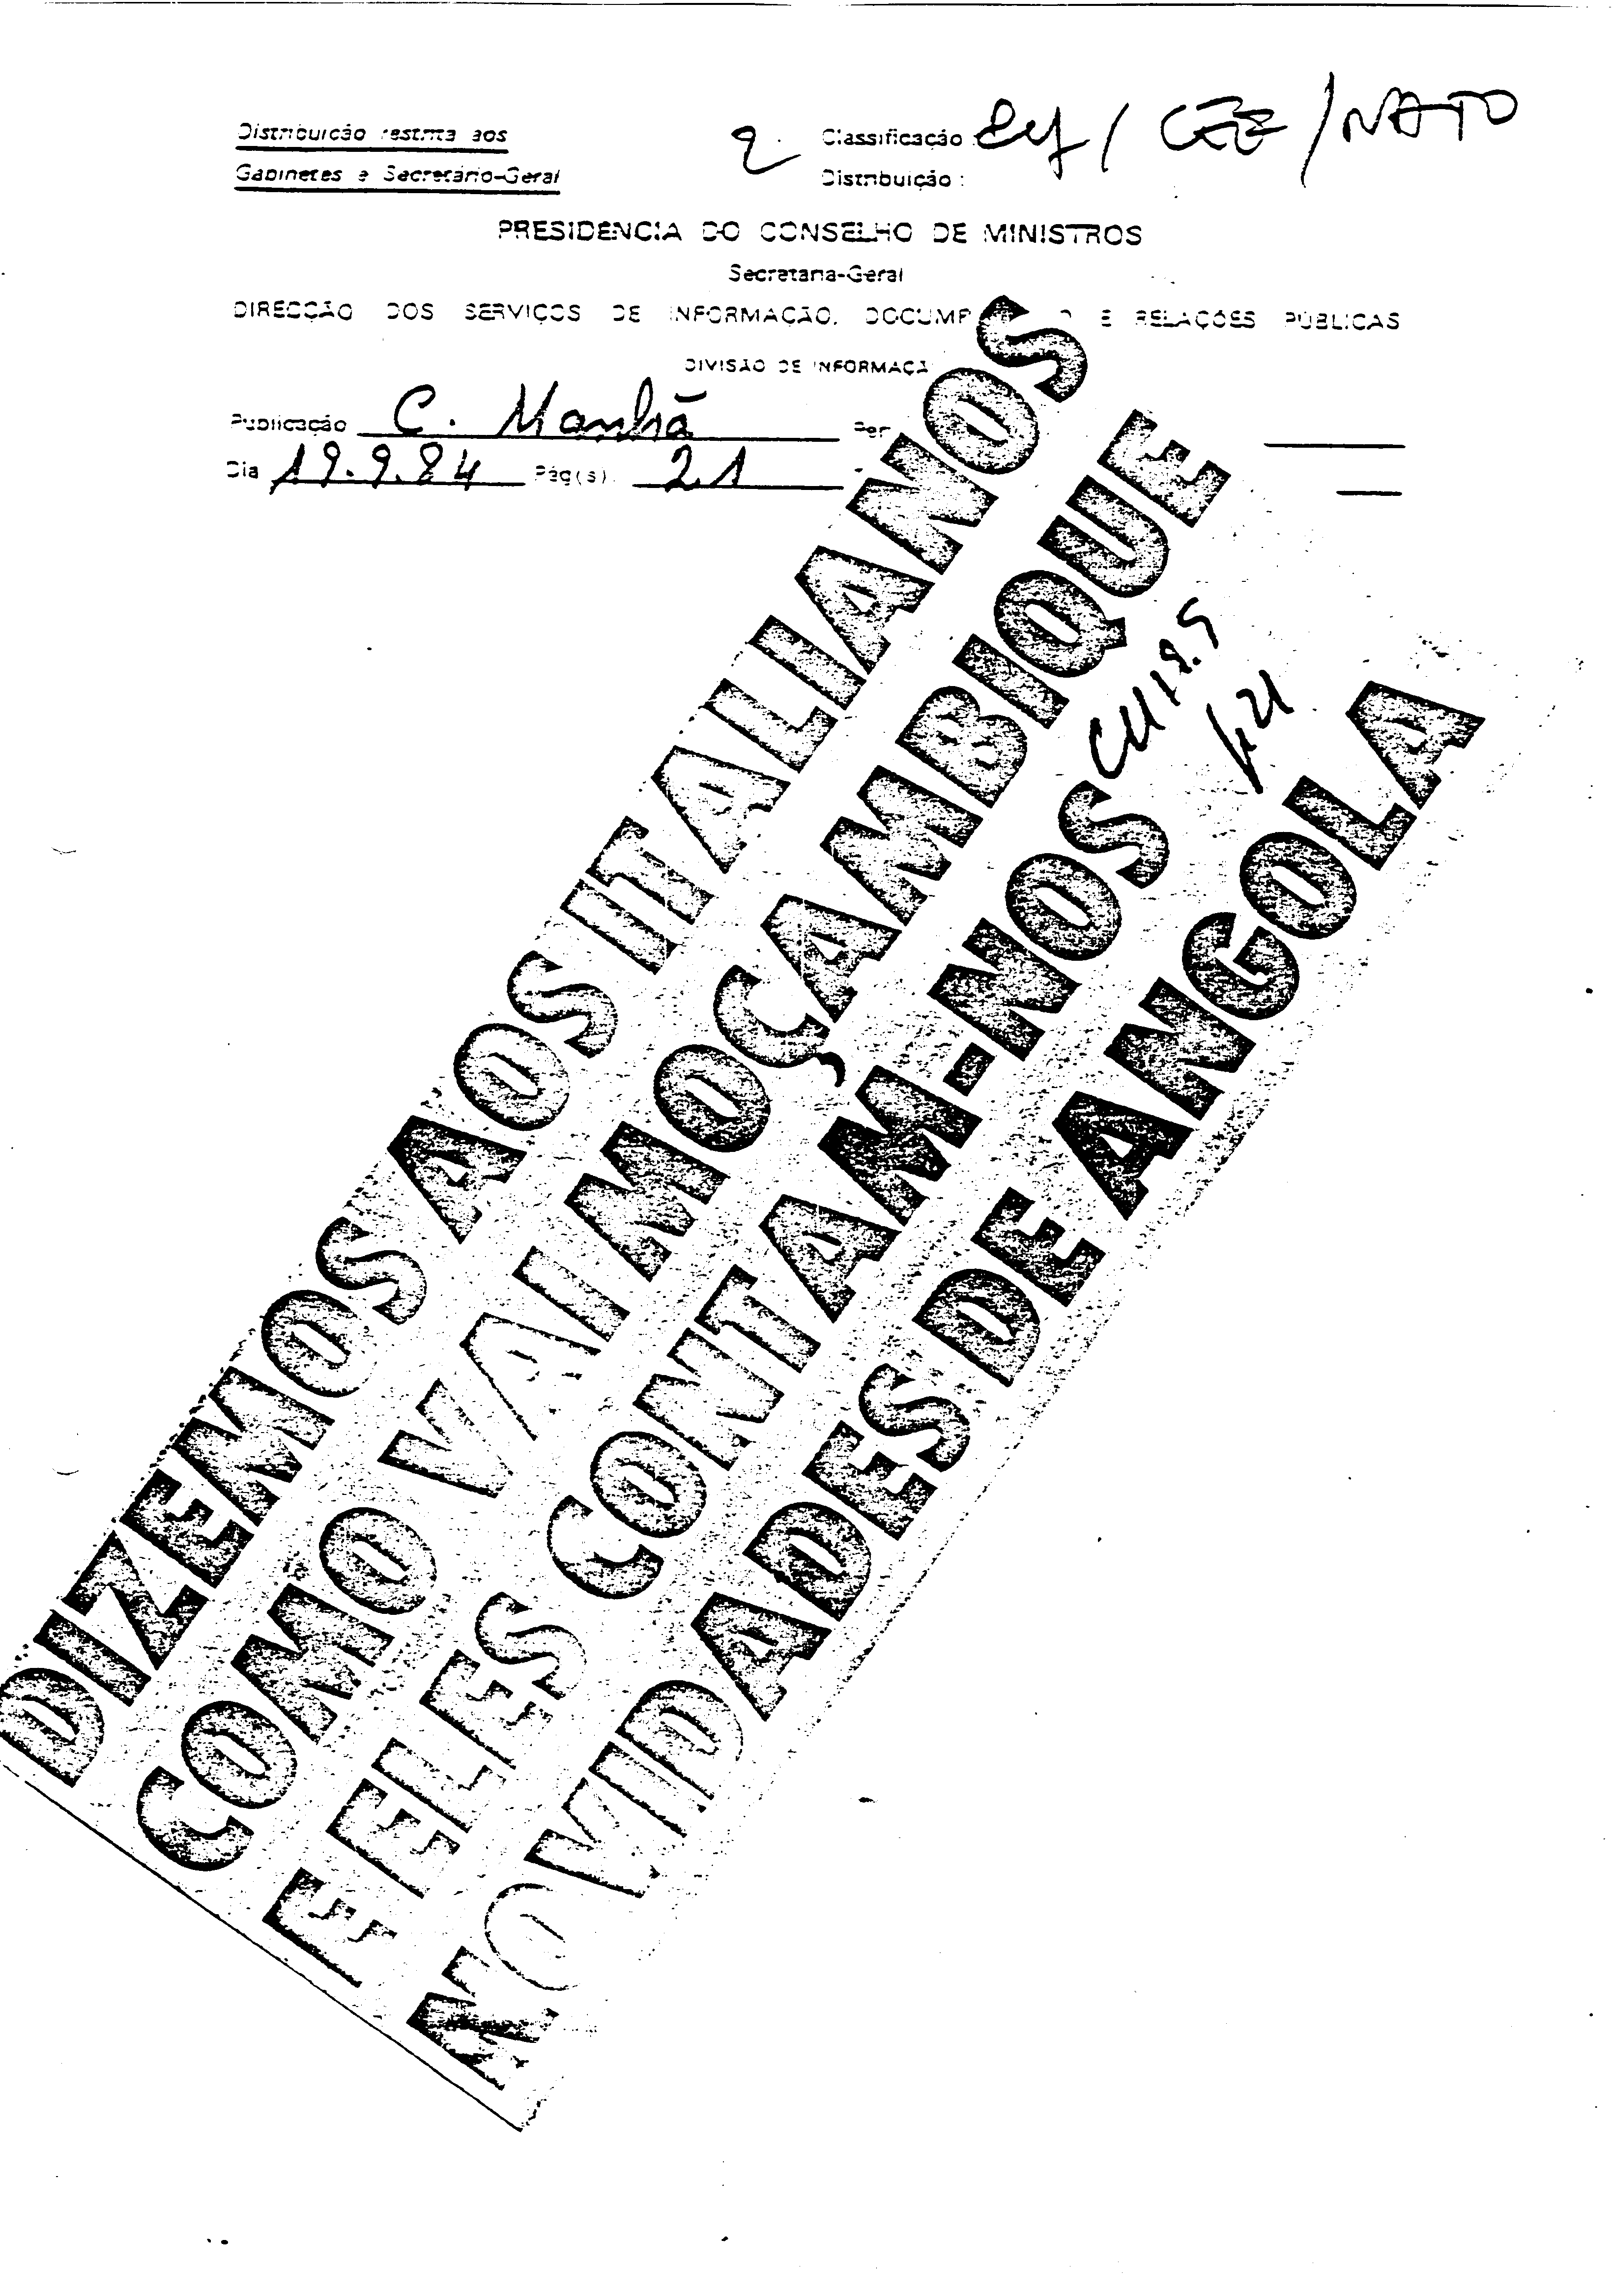 Distribuição restrita aos
Gabinetes e Secretário-Geral
2. Classificação: / CEE / NATO
Distribuição :
PRESIDÊNCIA DO CONSELHO DE MINISTROS
Secretaria-Geral
DIRECÇÃO DOS SERVIÇOS DE INFORMAÇÃO, DOCUME O E RELAÇÕES PÚBLICAS
DIVISÃO DE INFORMAÇÃ
Publicação C. Manhã Per
Dia 19.9.84 Pág(s). 21
DIZEMOS AOS ITALIANOS
COMO VAI MOÇAMBIQUE
E ELES CONTAM-NOS
NOVIDADES DE ANGOLA